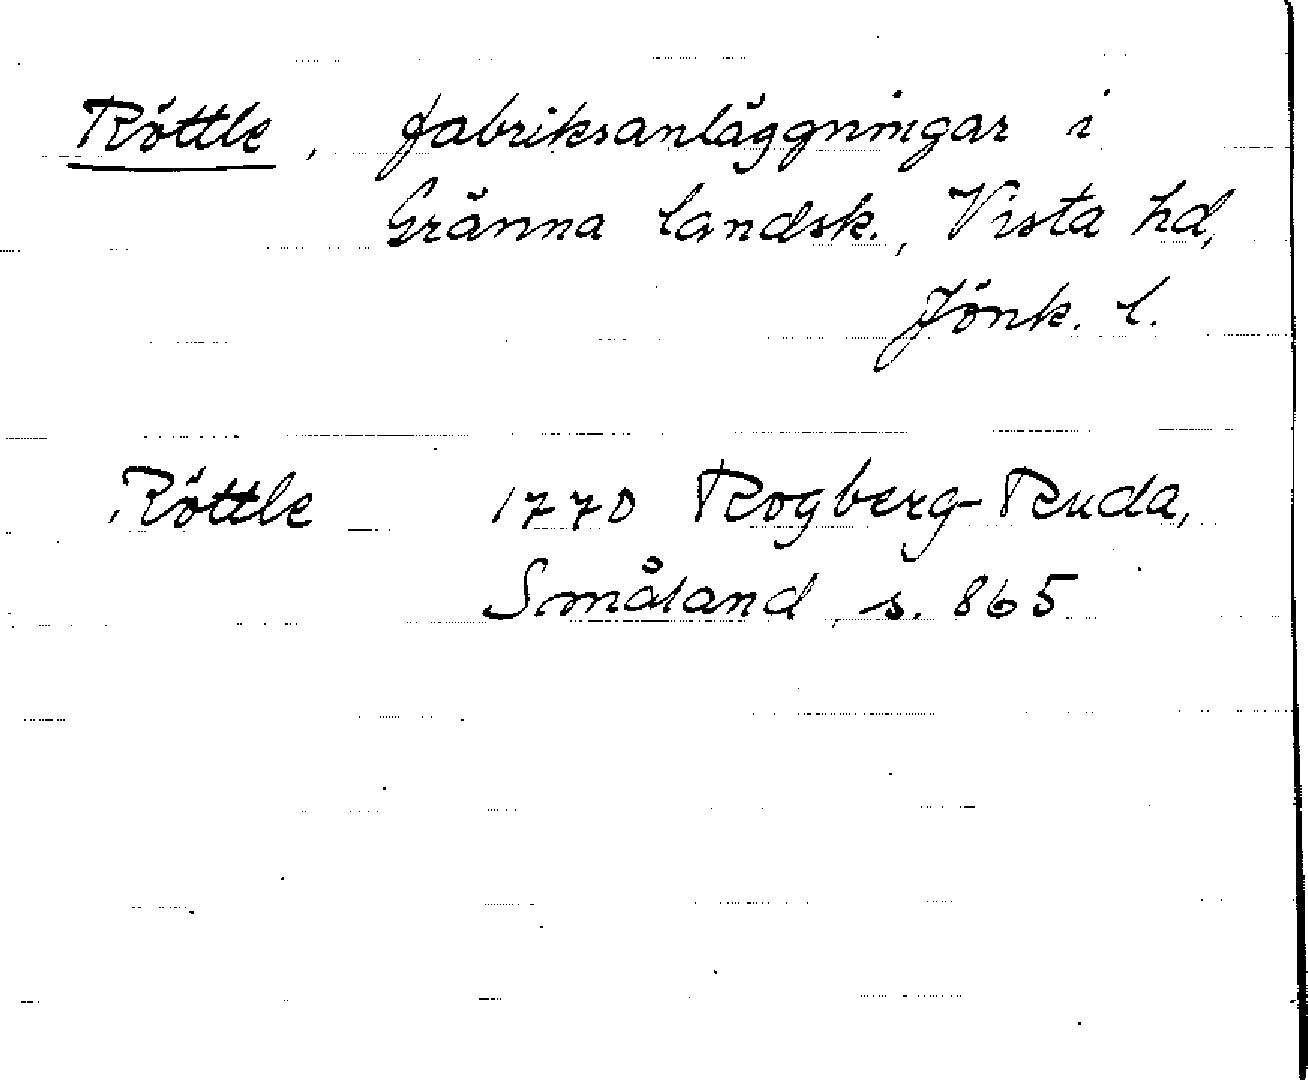 Röttle, fabriksanläggningar i
Gränna landsk., Vista hd,
Jönk. l.
Röttle 1770 Rogberg-Ruda,
Småland, s. 865